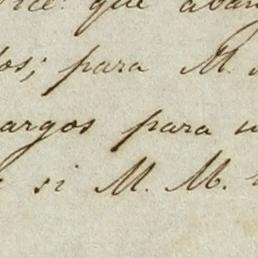 que aban
os; para M.
argos para
si M. M.